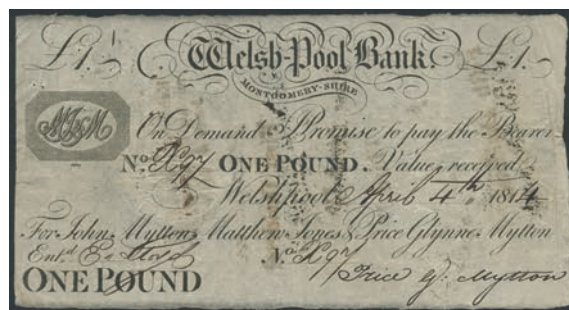 £1. Welsh-Pool Bank £1.
MONTGOMERY-SHIRE
MJ&M
On Demand I Promise to pay the Bearer
No. X97 ONE POUND. Value received
Welshpool April 4th 1814
For John Mytton, Matthew Jones & Price Glynne Mytton
Entd. E. Lloyd No. X97
ONE POUND Price G. Mytton